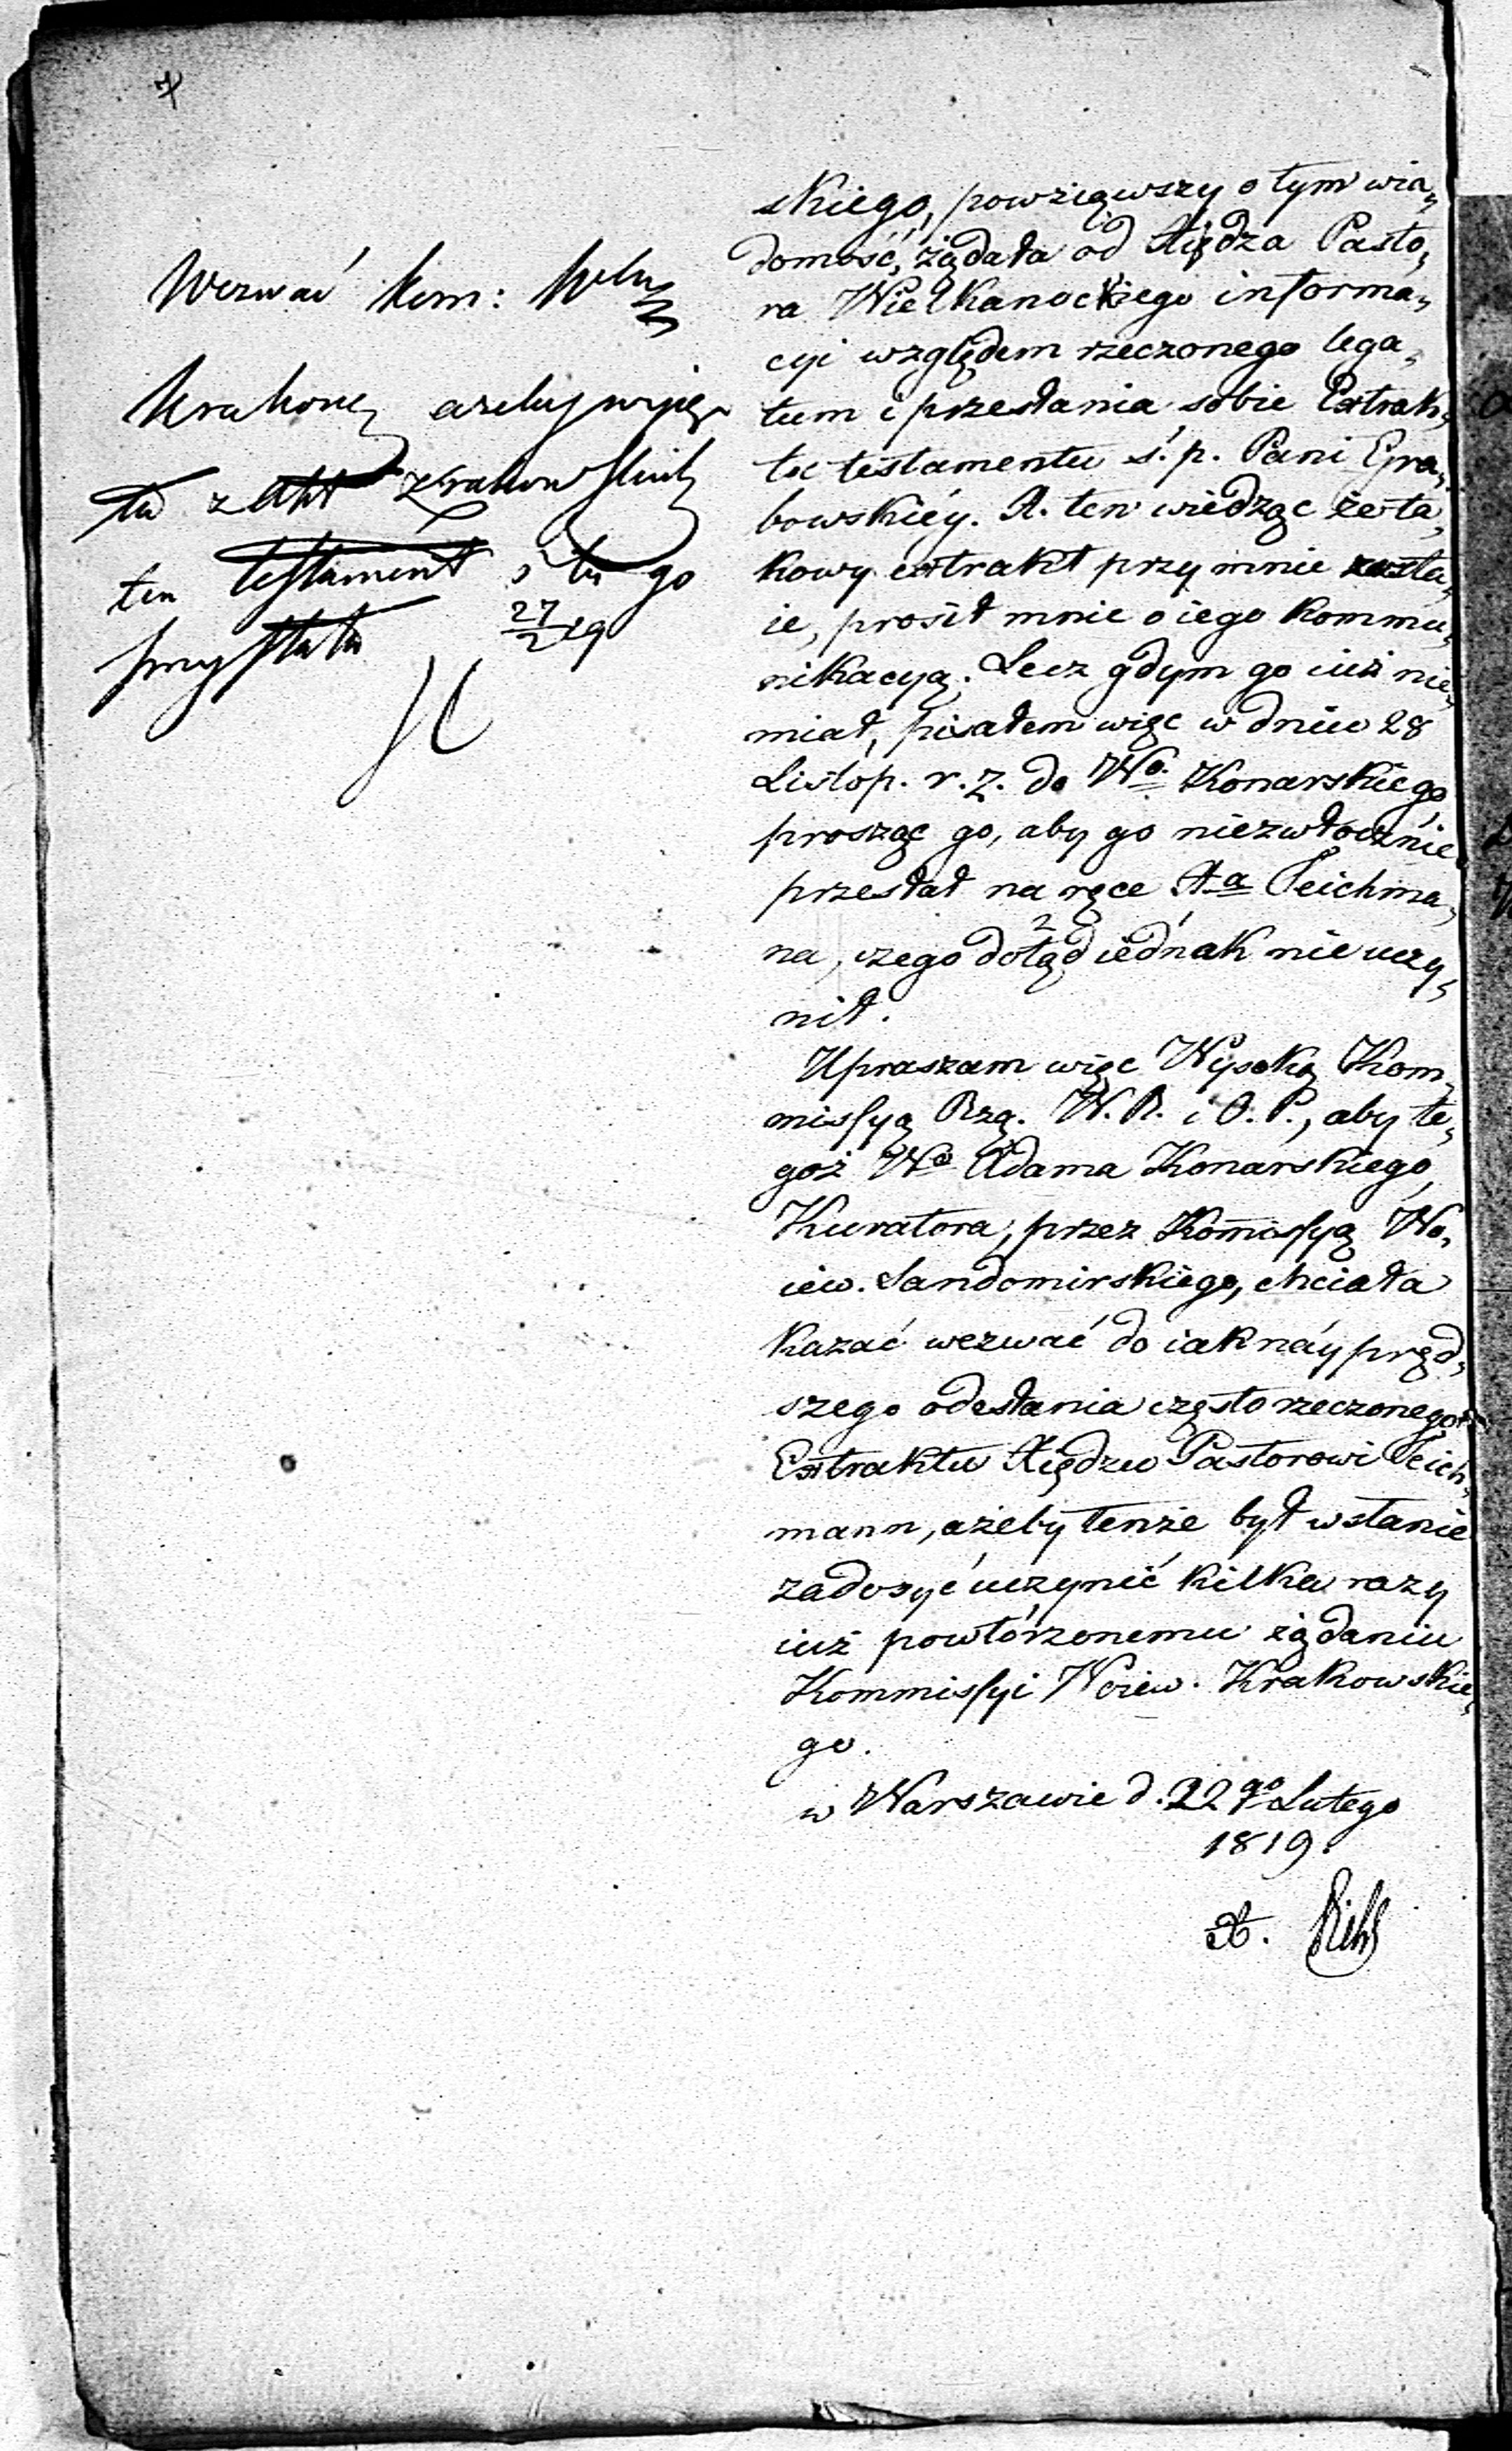 Wezwać kom: Wdz
Krakows ażeby wyję
ła z Akt Krakowskich
ten testament i tu go
przysłała 27/2 19
skiego, powziąwszy o tym wia„
domość, żądała od Xiędza Pasto„
ra Wielkanockiego informa„
cyi względem rzeczonego lega„
tum i przesłania sobie Extrak„
tu testamentu ś. p. Pani Gra„
bowskiéy. A. ten wiedząc że ta„
kowy extrakt przy mnie zosta„
ie, prosił mnie o iego kommu„
nikacyą. Lecz gdym go iuż nie„
miał, pisałem więc w dniu 28
Listop. r. z. do Wo. Konarskiego,
prosząc go, aby go niezwłocznie
przesłał na ręce Xa Teichma„
na, czego dotąd iednak nie uczy„
nił.
Upraszam więc Wysoką Kom„
missyą Rzą. W. R. i O. P., aby te„
goż Wo Adama Konarskiego,
Kuratora, przez Komissyą Wo„
iew. Sandomirskiego, chciała
kazać wezwać do iaknáy pręd„
szego odesłania często rzeczonego
Extraktu Xiędzu Pastorowi Teich„
mann, ażeby tenże był w stanie
zadosyć uczynić kilka razy
iuż powtórzonemu żądaniu
Kommissyi Woiew. Krakowskie„
go.
w Warszawie d. 22go Lutego
1819.